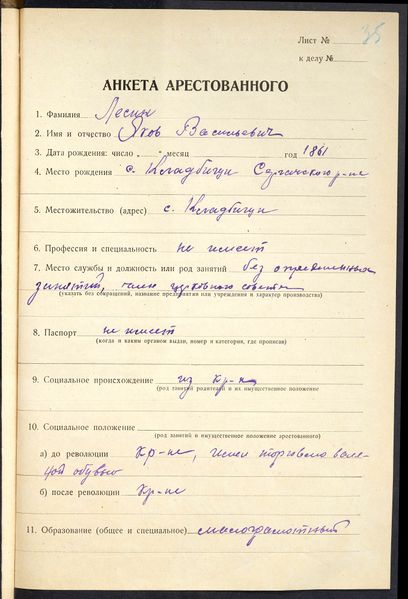 35
Лист №
к делу №
АНКЕТА АРЕСТОВАННОГО
1. Фамилия Лесин
2. Имя и отчество Яков Васильевич
3. Дата рождения: число „ “ месяц год 1861
4. Место рождения с. Кладбищи Сергачского р-на
5. Местожительство (адрес) с. Кладбищи
6. Профессия и специальность не имеет
7. Место службы и должность или род занятий без определенных
занятий, член церковного совета
(указать без сокращений, название предприятия или учреждения и характер производства)
8. Паспорт не имеет
(когда и каким органом выдан, номер и категория, где прописан)
9. Социальное происхождение из кр-н
(род занятий родителей и их имущественное положение
10. Социальное положение
(род занятий и имущественное положение арестованного)
а) до революции кр-не, имел торговлю вале-
ной обувью
б) после революции кр-не
11. Образование (общее и специальное) малограмотный